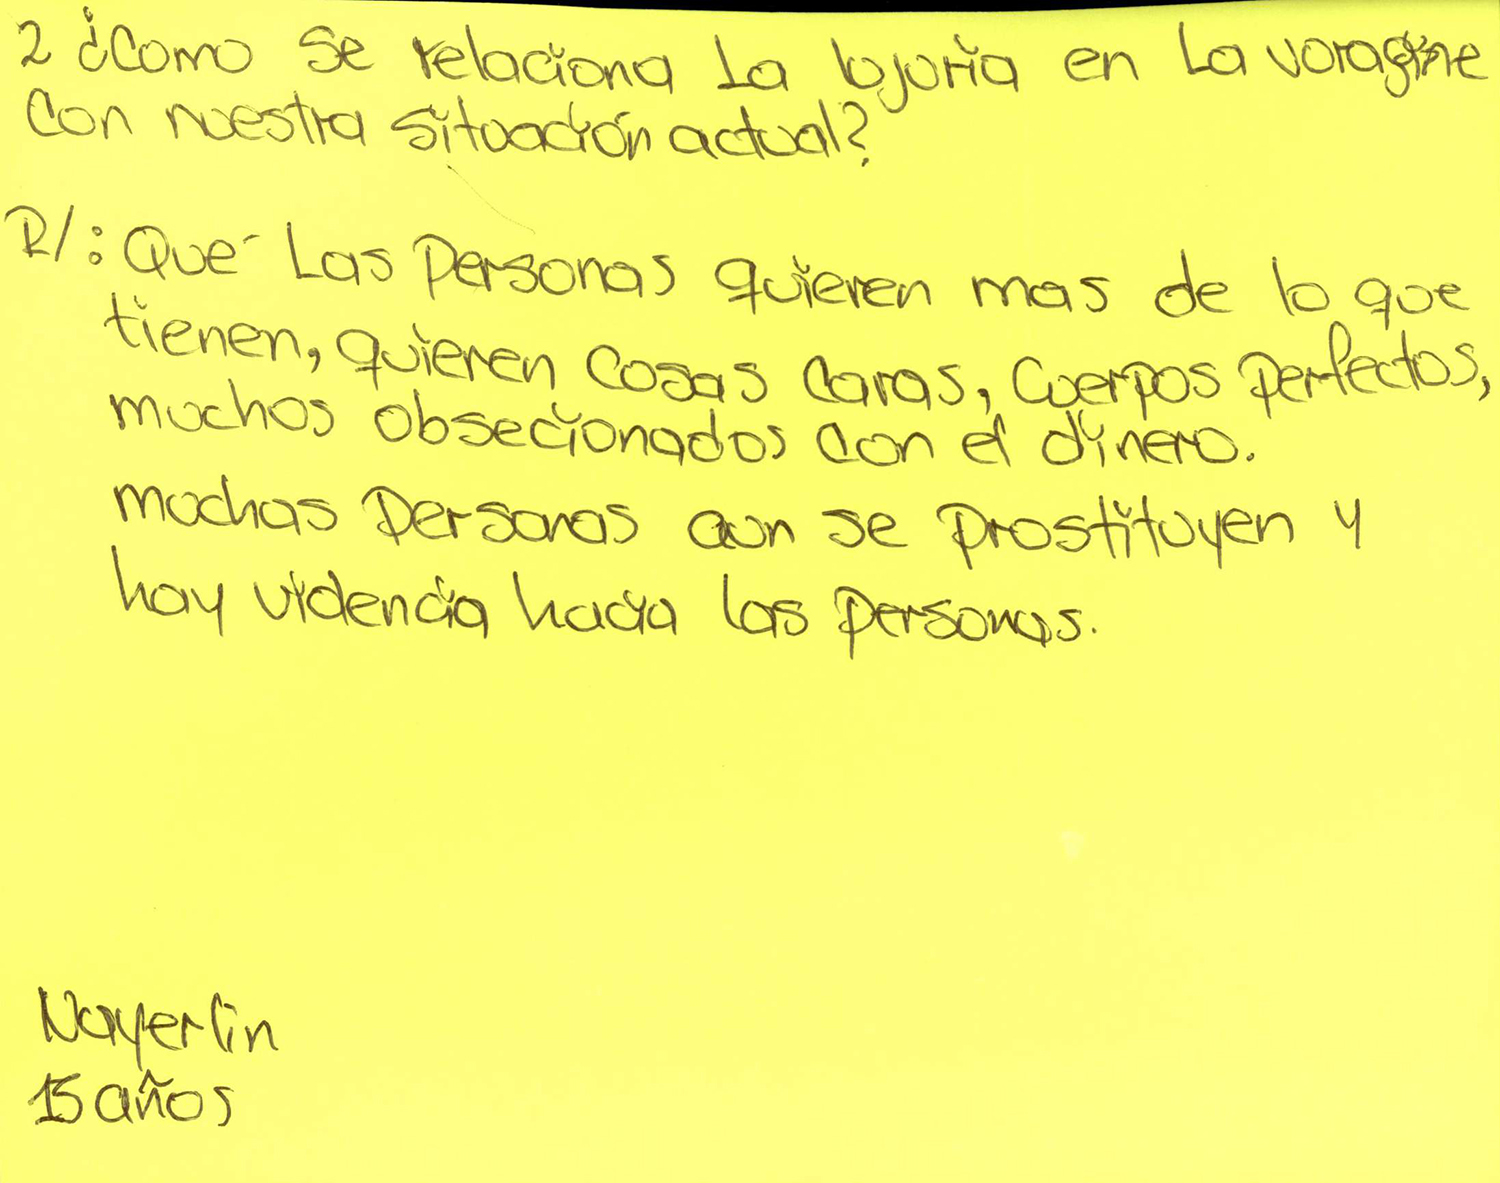 2 ¿Como se relaciona La lujuria en La voragine
Con nuestra situación actual?
R/: Que Las Personas quieren mas de lo que
tienen, quieren Cosas Caras, Cuerpos perfectos,
muchos obsecionados con el dinero.
muchas Personas aun se prostituyen y
hay violencia hacia las personas.
Nayerlin
15 años